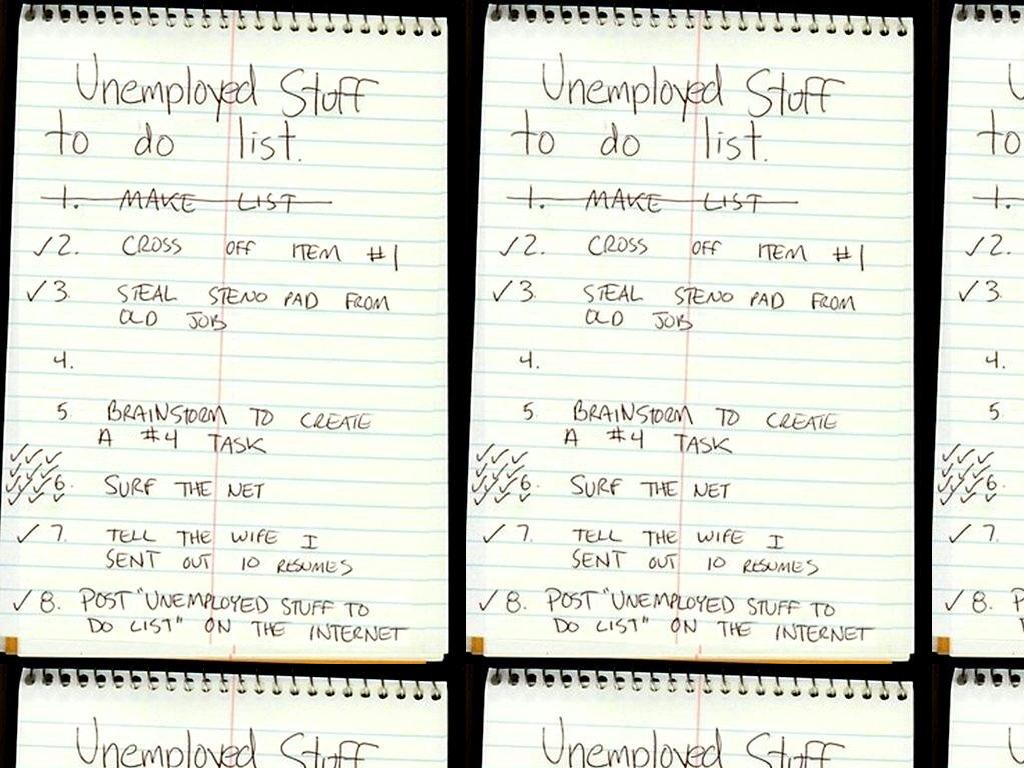 Unemployed Stuff
to do list.
1. MAKE LIST
✓2. CROSS OFF ITEM #1
✓3. STEAL STENO PAD FROM
OLD JOB
4.
5. BRAINSTORM TO CREATE
A #4 TASK
6. SURF THE NET
✓7. TELL THE WIFE I
SENT OUT 10 RESUMES
✓8. POST "UNEMPLOYED STUFF TO
DO LIST" ON THE INTERNET
Unemployed Stuff
to do list.
1. MAKE LIST
✓2. CROSS OFF ITEM #1
✓3. STEAL STENO PAD FROM
OLD JOB
4.
5. BRAINSTORM TO CREATE
A #4 TASK
6. SURF THE NET
✓7. TELL THE WIFE I
SENT OUT 10 RESUMES
✓8. POST "UNEMPLOYED STUFF TO
DO LIST" ON THE INTERNET
to
1.
✓2.
✓3
4.
5
6.
✓7.
✓8.
Unemployed Stuff
Unemployed Stuff